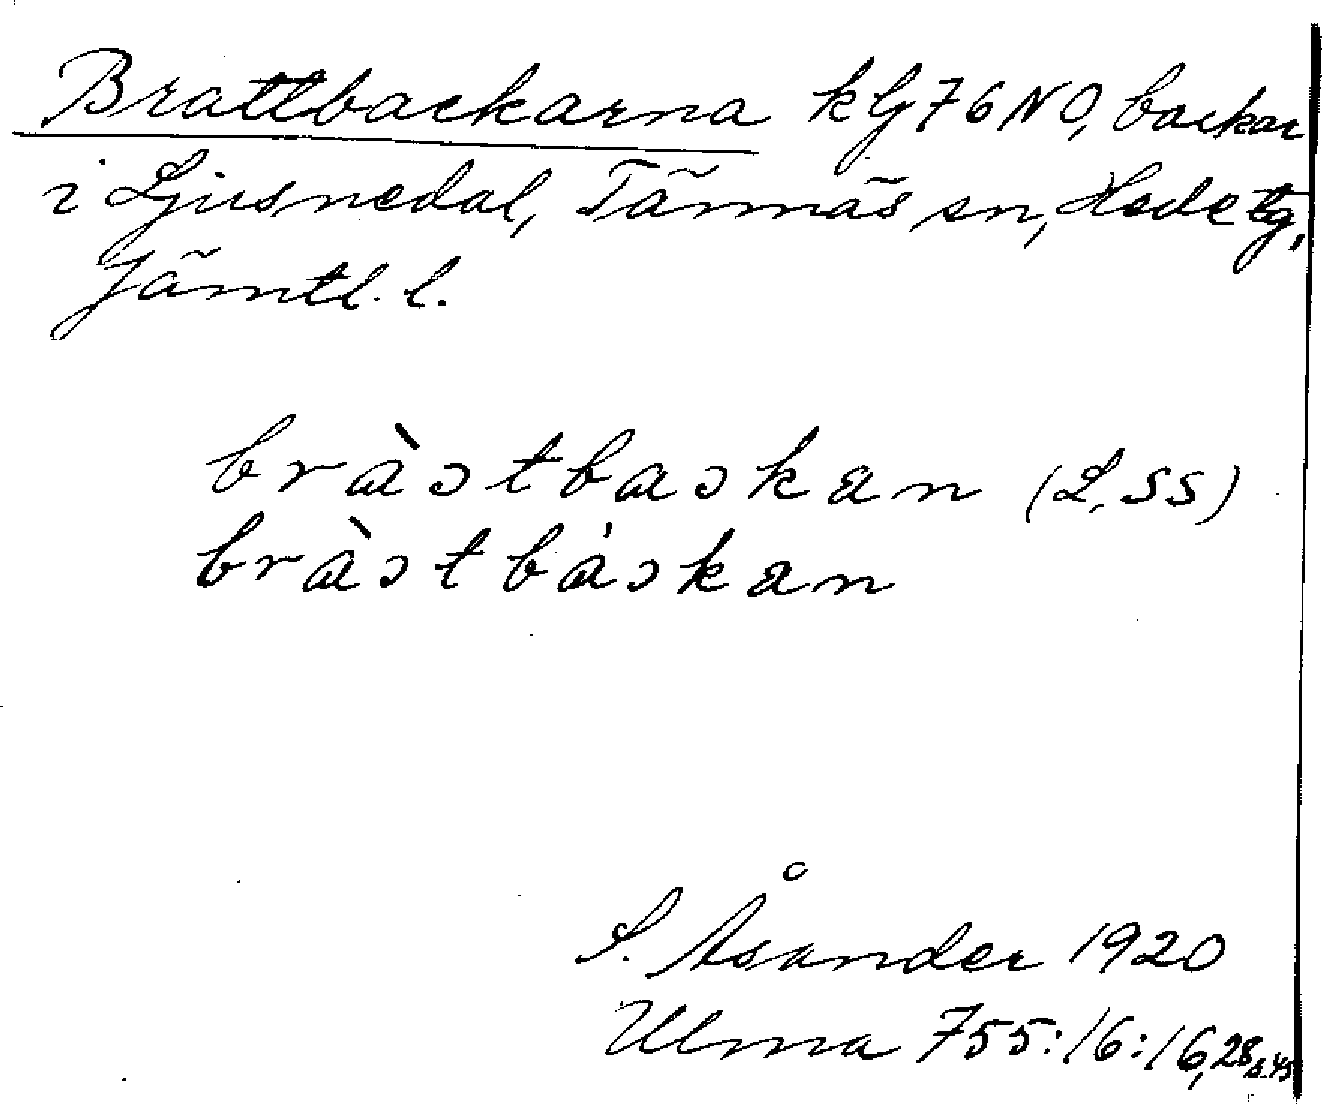 Brattbackarna kG76NO, backar
i Ljusnedal, Tännäs sn, Hede tg,
Jämtl. l.
bràɔtbaɔkan (L, SS)
bràɔtbȧɔkan
S. Åsander 1920
Ulma 755:16:16, 28